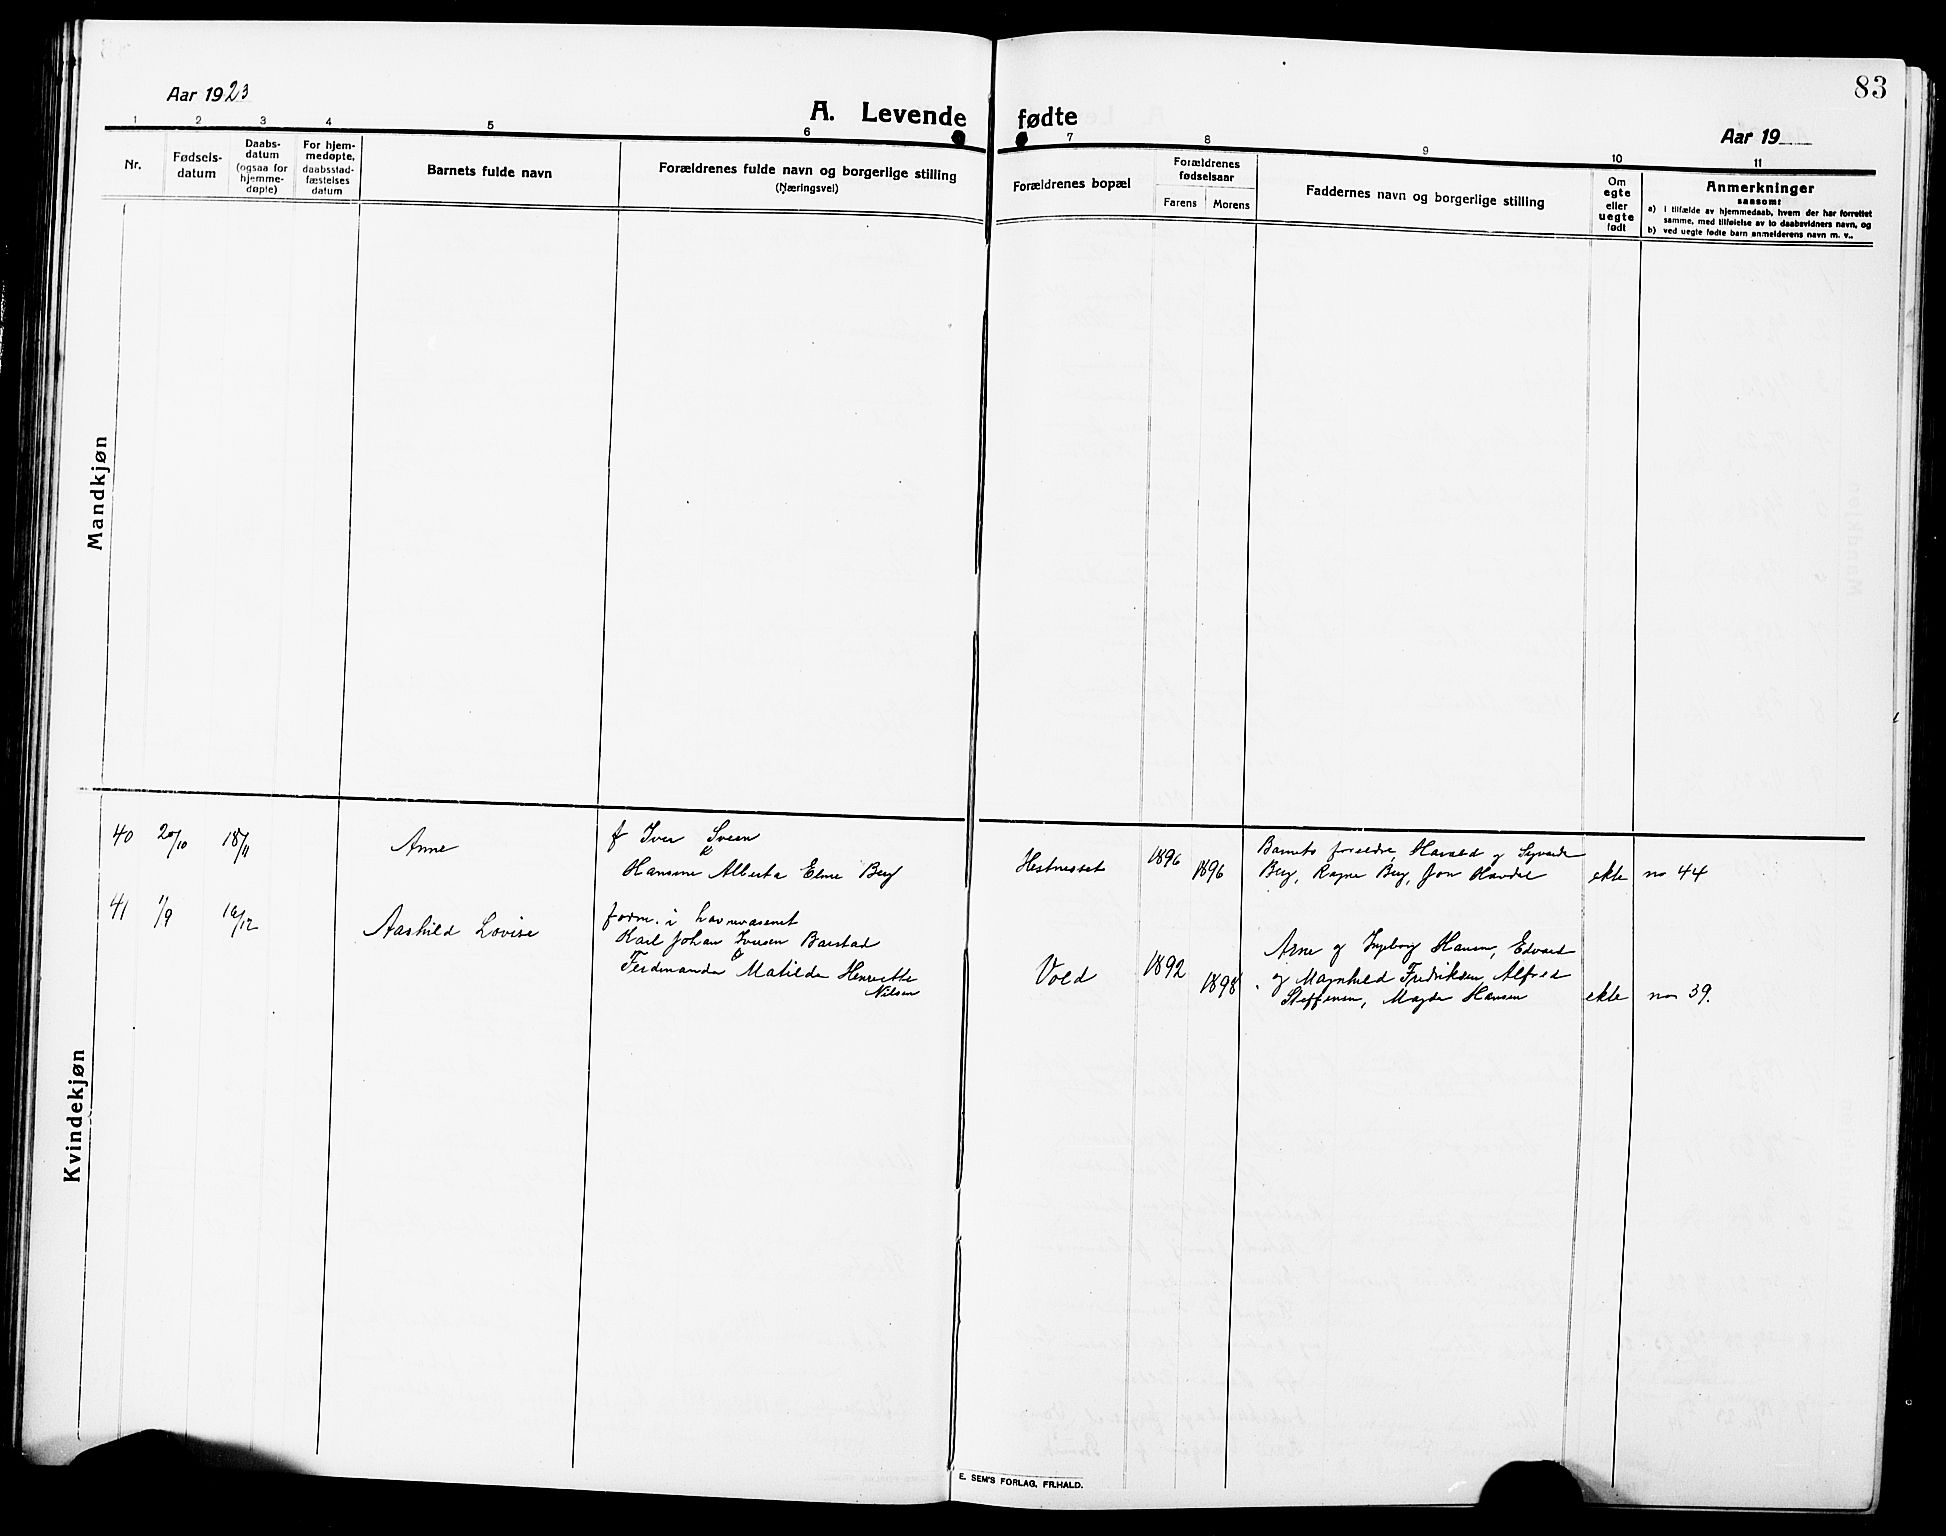 83
Aar 1923
A. Levende fødte
Aar 19
1 2 3 4 5 6 7 8 9 10 11
Nr.
Fødsels-
datum
Daabs-
datum
(ogsaa for
hjemme-
døpte)
For hjem-
medøpte,
daabsstad-
fæstelses
datum
Barnets fulde navn
Forældrenes fulde navn og borgerlige stilling
(Næringsvei)
Forældrenes bopæl
Forældrenes
fødselsaar
Farens Morens
Faddernes navn og borgerlige stilling
Om
egte
eller
uegte
født
Anmerkninger
sansomt
a) I tilfælde av hjemmedaab, hvem der har forrettet
samme, med tilføielse av to daabsvidners navn, og
b) ved uegte fødte barn anmelderens navn m. v.
Mandkjøn
Kvindekjøn
40 20/10 18/11 Anne
f Iver Sveen
Hansine Alberta Elne Berg
Hestnesset 1896 1896
Barnets foreldre, Harald og Sigvarda
Berg, Ragna Berg, Jon
ekte no 44
41 1/9 16/12 Aashild Lovise
form. i havnevæsenet
Karl Johan Iversen Barstad
&
Ferdinanda Matilde Henriette
Nilsen
Vold 1892 1898
Arne og Ingeborg Hansen, Edvard
og Magnhild Fredriksen, Alfred
Steffensen, Magda Hansen
ekte no 39.
E. SEM'S FORLAG, FR.HALD.